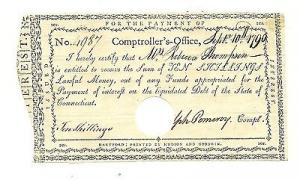 FOR THE PAYMENT OF
INTEREST.
No. 1087 Comptroller's-Office, Sept. 10th 1790
I hereby certify that Mr. Rebecca Thompson
is entitled to receive the Sum of TEN SHILLINGS
Lawful Money, out of any Funds appropriated for the
Payment of interest on the liquidated Debt of the State of
Connecticut.
Ten Shillings Comptr.
HARTFORD: PRINTED BY HUDSON AND GOODWIN.